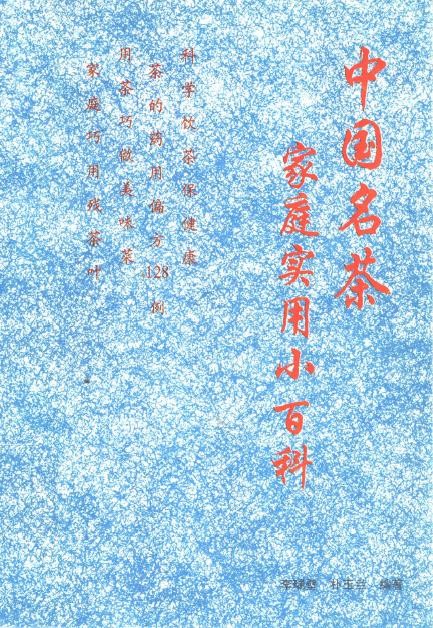 中国名茶
家庭实用小百科
科学饮茶保健康
茶的药用偏方128例
用茶巧做美味菜
家庭巧用残茶叶
编著